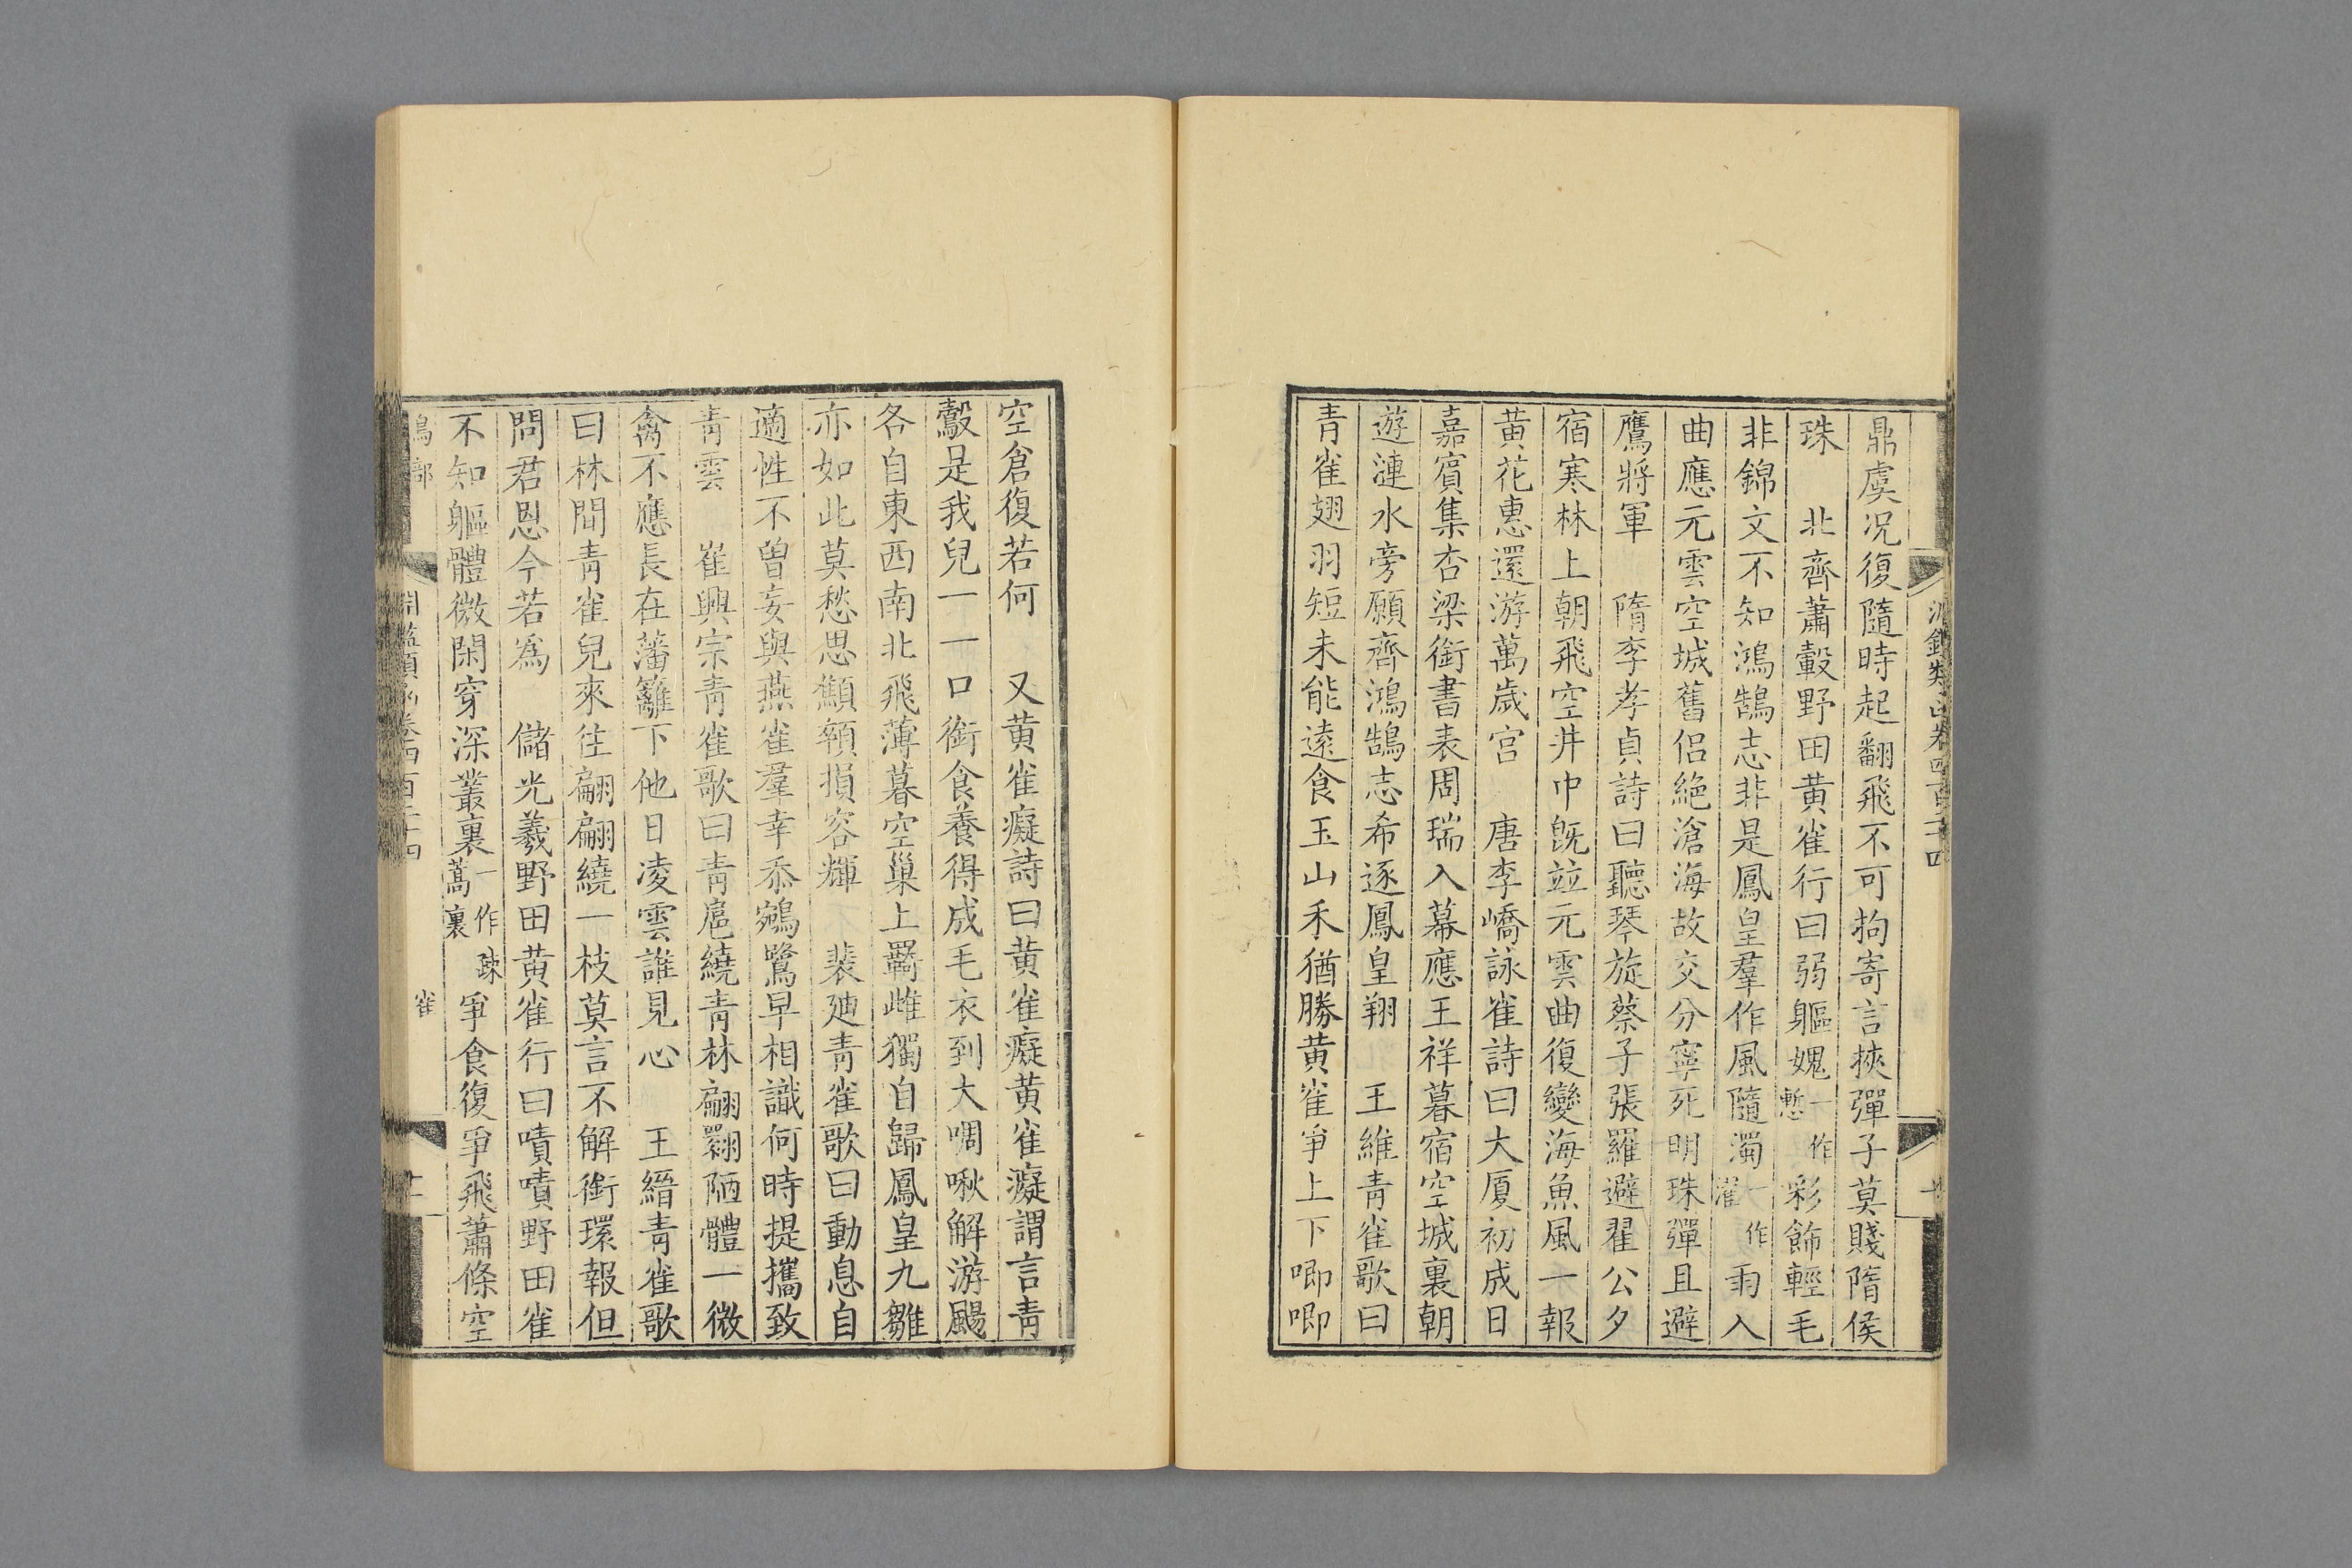 鼎虞况復隨時起翻飛不可拘寄言挾彈子莫賤隋侯
珠　北齊蕭轂野田黄雀行曰弱軀媿一作慙彩飾輕毛
非錦文不知鴻鵠志非是鳳皇羣作風隨濁一作灌雨入
曲應元雲空城舊侶絶滄海故交分寧死明珠彈且避
鷹將軍　隋李孝貞詩曰聽琴旋蔡子張羅避翟公夕
宿寒林上朝飛空井中旣竝元雲曲復變海魚風一報
黄花惠還游萬歲宮　唐李嶠詠雀詩曰大厦初成日
嘉賓集杏梁銜書表周瑞入幕應王祥暮宿空城裏朝
遊漣水旁願齊鴻鵠志希逐鳳皇翔　王維青雀歌曰
青雀翅羽短未能逺食玉山禾猶勝黄雀爭上下唧唧
空倉復若何　又黄雀癡詩曰黄雀癡黄雀癡謂言青
鷇是我兒一一口銜食養得成毛衣到大啁啾解游颺
各自東西南北飛薄暮空巢上羈雌獨自歸鳳皇九雛
亦如此莫愁思顦顇損容輝　裴廸青雀歌曰動息自
適性不曾妄與燕雀羣幸忝鵷鷺早相識何時提攜致
青雲　崔興宗青雀歌曰青扈繞青林翩翾陋體一微
禽不應長在藩籬下他日凌雲誰見心　王縉青雀歌
曰林間青雀兒來徃翩翩繞一枝莫言不解銜環報但
問君恩今若爲　儲光羲野田黄雀行曰嘖嘖野田雀
不知軀體微閑穿深叢裏一作疎蒿裏爭食復爭飛蕭條空
鳥部　淵鑑類函卷四百二十四　雀　十一